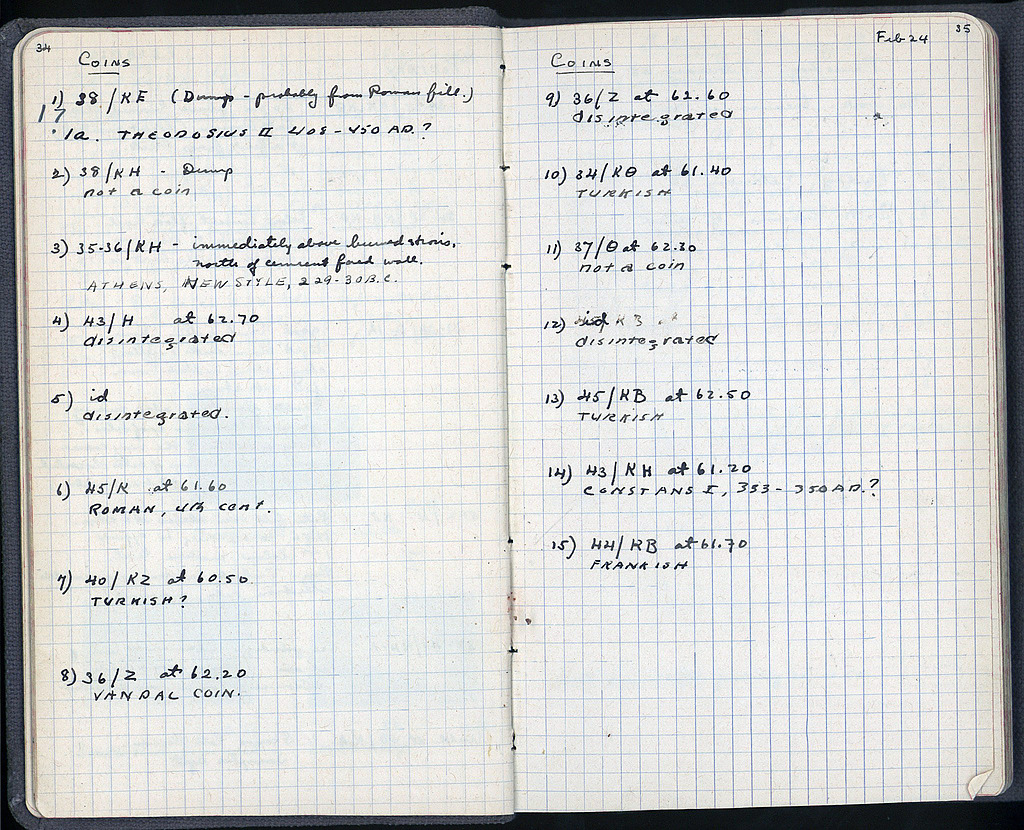 34
COINS
1) 38/KE (Dump - probably from Roman fill.)
17
1a. THEODOSIUS II 408-450 AD.?
2) 38/KH - Dump
not a coin
3) 35-36/KH - immediately above burned stratum,
north of cement faced wall.
ATHENS, NEW STYLE, 229-30 B.C.
4) 43/H at 62.70
disintegrated
5) id
disintegrated.
6) 45/K at 61.60
ROMAN, 4th cent.
7) 40/KZ at 60.50
TURKISH?
8) 36/Z at 62.20
VANDAL COIN.
Feb 24 35
COINS
9) 36/Z at 62.60
disintegrated
10) 34/KΘ at 61.40
TURKISH
11) 37/Θ at 62.30
not a coin
12) id
disintegrated
13) 45/KB at 62.50
TURKISH
14) 43/KH at 61.20
CONSTANS I, 333-350 AD.?
15) 44/KB at 61.70
FRANKISH